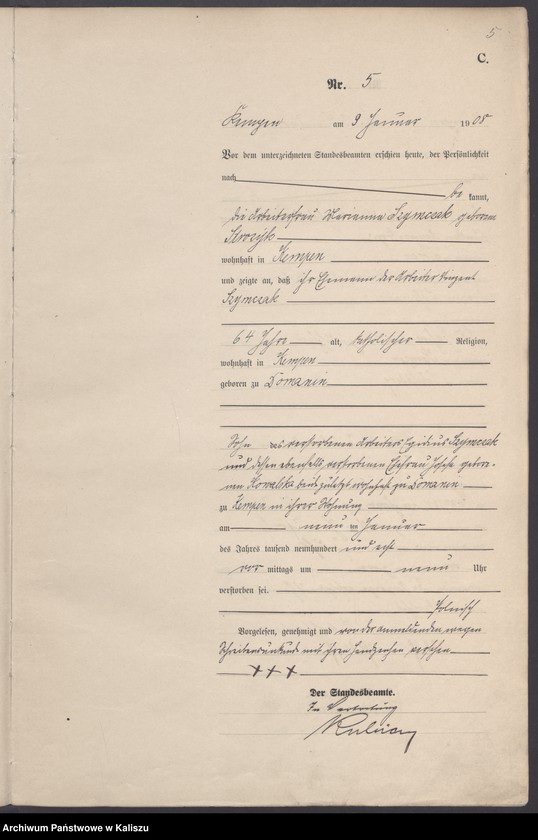 5
C.
Nr. 5
Kempen am 9 Januar 1908
Vor dem unterzeichneten Standesbeamten erschien heute, der Persönlichkeit
nach
be kannt,
die Arbeiterfrau Marianna Szymczak geborene
wohnhaft in Kempen
und zeigte an, daß ihr Ehemann der Arbeiter Vinzent
Szymczak
64 Jahre alt, katholischer Religion,
wohnhaft in Kempen
geboren zu Domanin
Sohn des verstorbenen Arbeiters Egidius Szymczak
und dessen ebenfalls verstorbenen Ehefrau Josefa gebore-
nen Kowalska beide zuletzt wohnhaft zu Domanin
zu Kempen in ihrer Wohnung
am neun ten Januar
des Jahres tausend neunhundert und acht
vor mittags um neun Uhr
verstorben sei.
Polnisch
Vorgelesen, genehmigt und von der Anmeldenden wegen
Schreibensunkunde mit ihren Handzeichen versehen
+++
Der Standesbeamte.
In Vertretung
Archiwum Państwowe w Kaliszu